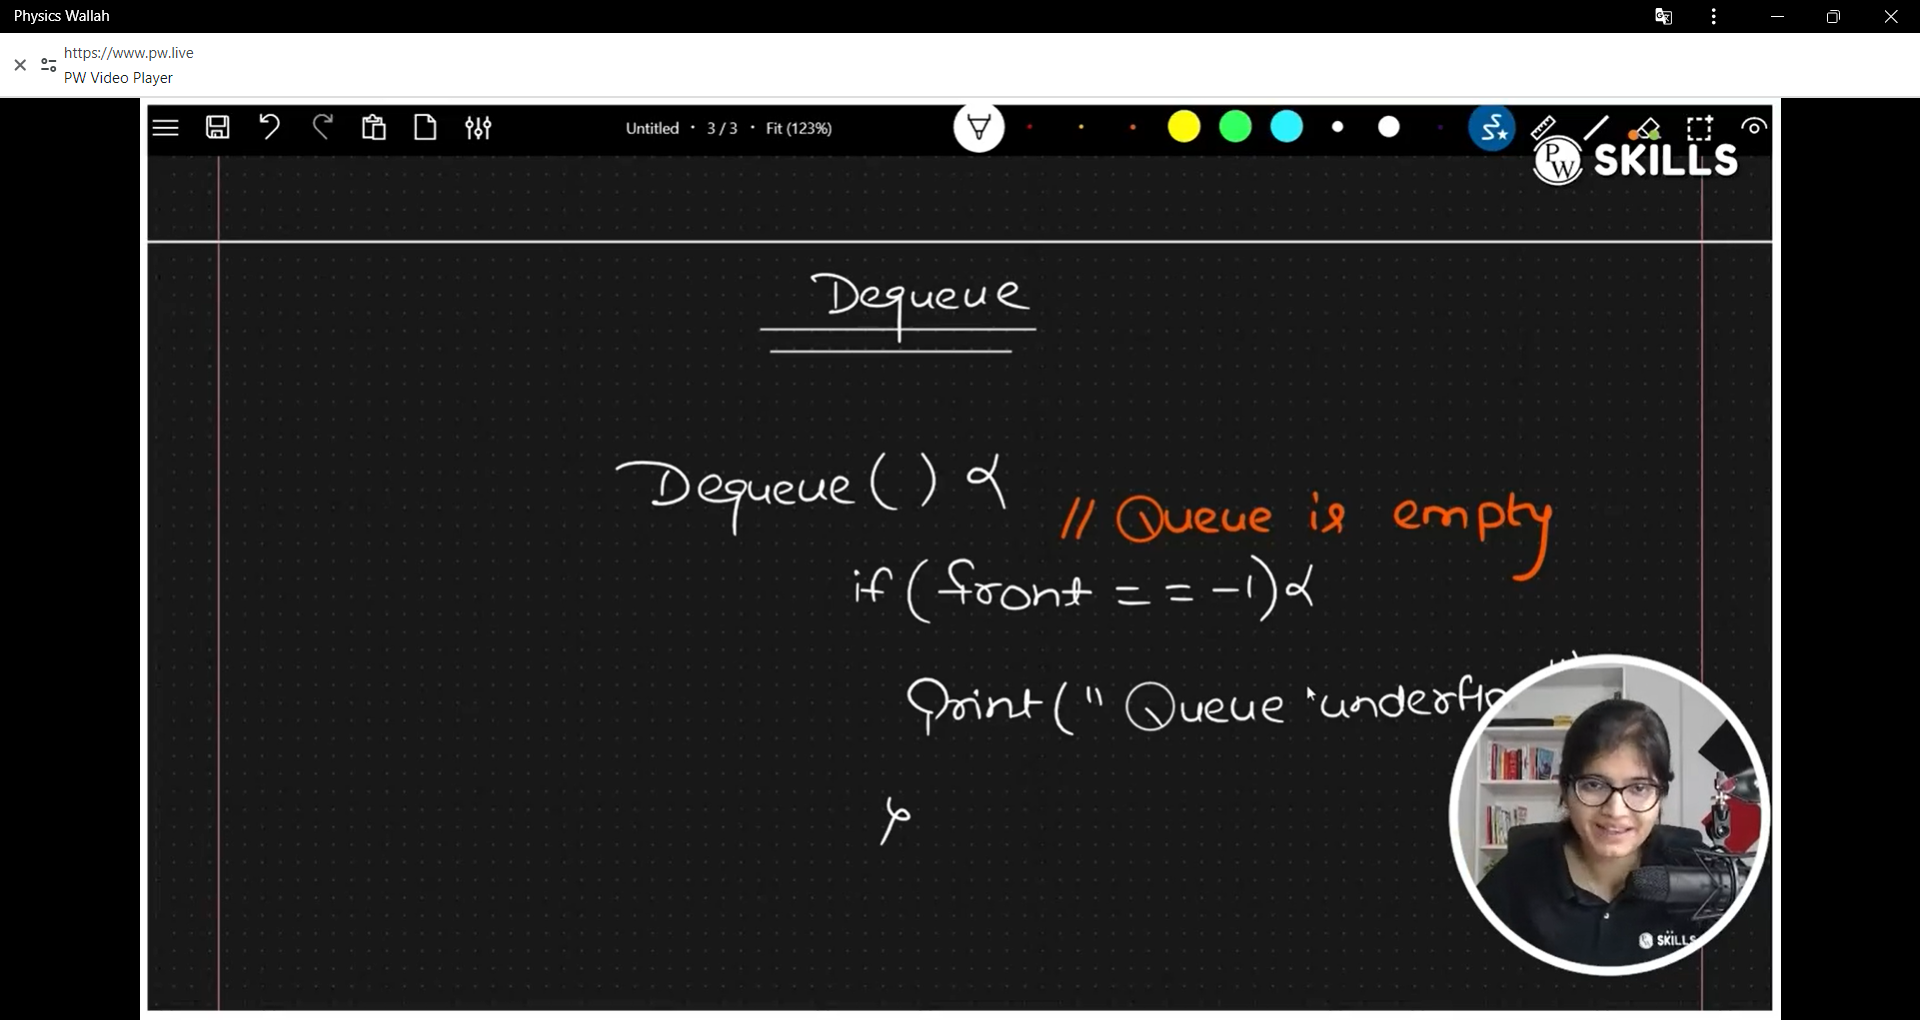 Physics Wallah
https://www.pw.live
PW Video Player
Untitled • 3 / 3 • Fit (123%)
PW SKILLS
Dequeue
Dequeue ( ) {
// Queue is empty
if ( front = = -1) {
Print ( " Queue underflo
}
SKILLS